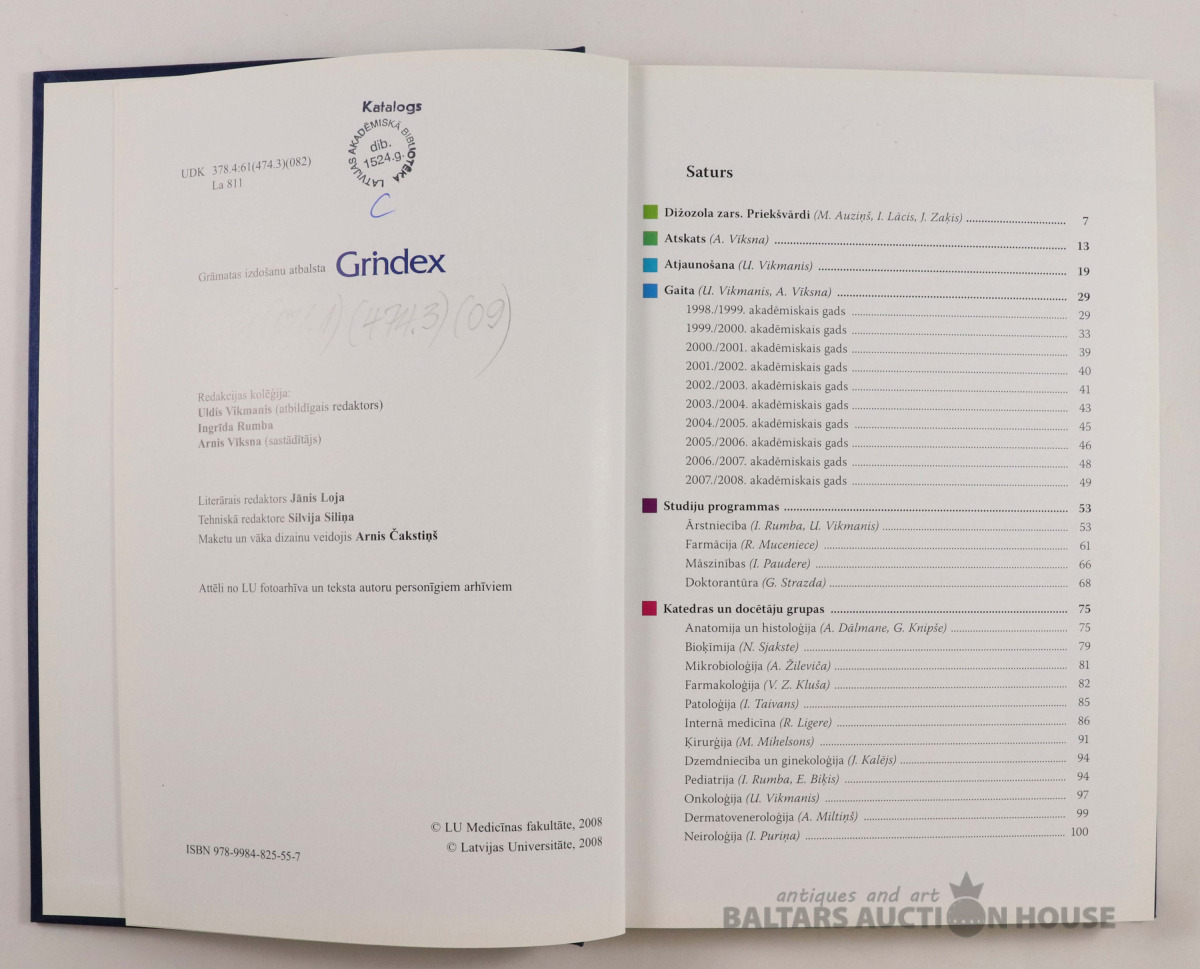 Katalogs
LATVIJAS AKADĒMISKĀ BIBLIOTĒKA
dib.
1524.g.
UDK 378.4:61(474.3)(082)
La 811
C
Grāmatas izdošanu atbalsta Grindex
1)(474.3)(09)
Redakcijas kolēģija:
Uldis Vikmanis (atbildīgais redaktors)
Ingrīda Rumba
Arnis Vīksna (sastādītājs)
Literārais redaktors Jānis Loja
Tehniskā redaktore Silvija Siliņa
Maketu un vāka dizainu veidojis Arnis Čakstiņš
Attēli no LU fotoarhīva un teksta autoru personīgiem arhīviem
© LU Medicīnas fakultāte, 2008
© Latvijas Universitāte, 2008
ISBN 978-9984-825-55-7
Saturs
Dižozola zars. Priekšvārdi (M. Auziņš, I. Lācis, J. Zaķis) 7
Atskats (A. Vīksna) 13
Atjaunošana (U. Vikmanis) 19
Gaita (U. Vikmanis, A. Vīksna) 29
1998./1999. akadēmiskais gads 29
1999./2000. akadēmiskais gads 33
2000./2001. akadēmiskais gads 39
2001./2002. akadēmiskais gads 40
2002./2003. akadēmiskais gads 41
2003./2004. akadēmiskais gads 43
2004./2005. akadēmiskais gads 45
2005./2006. akadēmiskais gads 46
2006./2007. akadēmiskais gads 48
2007./2008. akadēmiskais gads 49
Studiju programmas 53
Ārstniecība (I. Rumba, U. Vikmanis) 53
Farmācija (R. Muceniece) 61
Māszinības (I. Paudere) 66
Doktorantūra (G. Strazda) 68
Katedras un docētāju grupas 75
Anatomija un histoloģija (A. Dālmane, G. Knipše) 75
Bioķīmija (N. Sjakste) 79
Mikrobioloģija (A. Žileviča) 81
Farmakoloģija (V. Z. Kluša) 82
Patoloģija (I. Taivans) 85
Internā medicīna (R. Ligere) 86
Ķirurģija (M. Mihelsons) 91
Dzemdniecība un ginekoloģija (J. Kalējs) 94
Pediatrija (I. Rumba, E. Biķis) 94
Onkoloģija (U. Vikmanis) 97
Dermatoveneroloģija (A. Miltiņš) 99
Neiroloģija (I. Puriņa) 100
antiques and art
BALTARS AUCTION HOUSE